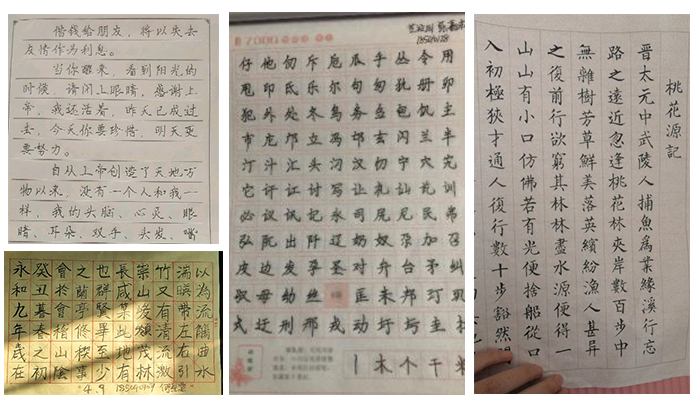 借钱给朋友，将以失去
友情作为利息。
当你醒来，看到阳光的
时候，请闭上眼睛，感谢上
帝，我还活着，昨天已成过
去，今天你要珍惜，明天更
要努力。
自从上帝创造了天地万
物以来，没有一个人和我一
样，我的头脑、心灵、眼
睛、耳朵、双手、头发、嘴
永和九年歲在
癸丑暮春之初
會於會稽山陰
之蘭亭修稧事
也群賢畢至少
長咸集此地有
崇山峻領茂林
竹又有清流激
湍暎帶左右引
以為流觴曲水
4.9
7000
仔他斥卮瓜乎丛令用
甩印氐乐尔句匆犰册卯
犯外处冬鸟务刍包饥主
市庀邝立冯玄闪兰半
汀汁汇头汉切宁穴宄
它讦讧讨写让礼讪讫训
必议讯记永司尻尼民弗
弘阢出阡辽奶奴加召
皮边发孕圣对弁台矛纠
驭母幼丝匡耒邦玎
式迂刑邢戎动圩圬圭
丨木个干
桃花源記
晉太元中武陵人捕魚為業緣溪行忘
路之遠近忽逢桃花林夾岸數百步中
無雜樹芳草鮮美落英繽紛漁人甚異
之復前行欲窮其林林盡水源便得一
山山有小口仿佛若有光便捨船從口
入初極狹才通人復行數十步豁然